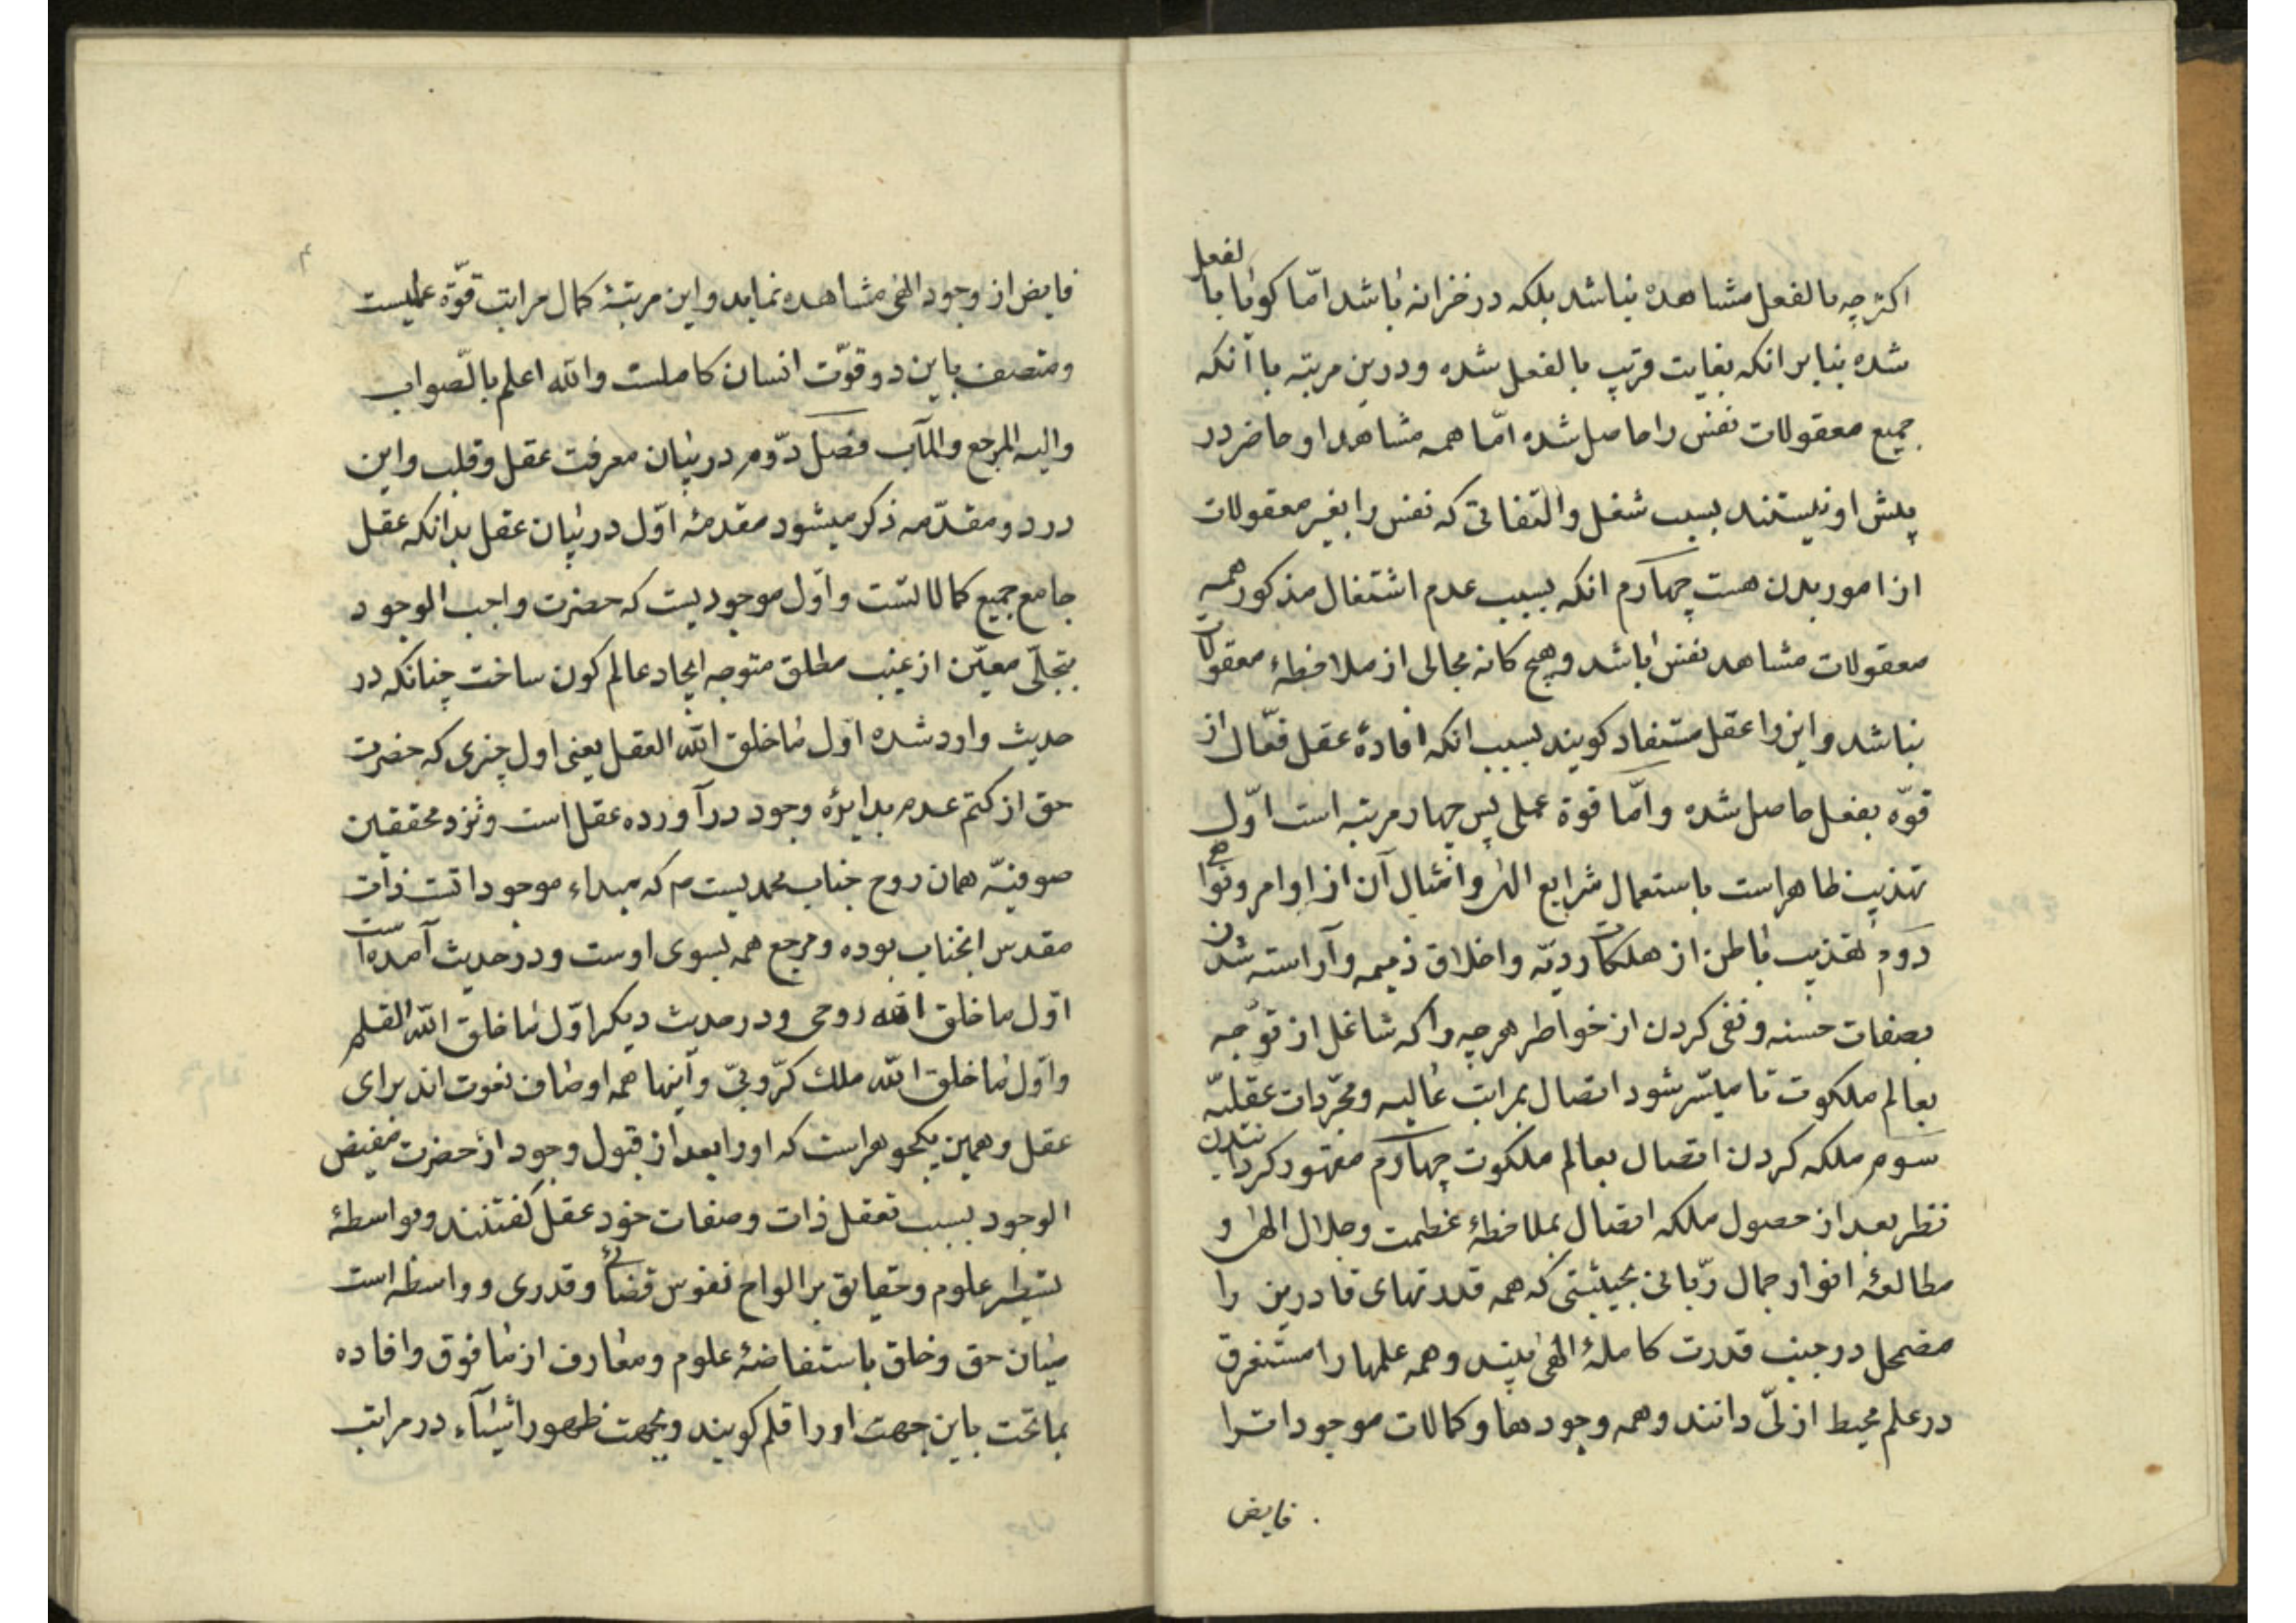 اکثرچه بالفعل مشاهده نباشد بلکه در خزانه باشد امّا کویا بالفعل
شده بنابر انکه بغایت قریب بالفعل شده ودرین مرتبه با آنکه
جمیع معقولات نفس را حاصل شده امّا همه مشاهد او حاضر در
پیش او نیستند بسبب شغل والتفاتی که نفس را بغیر معقولات
از امور بدن هست چهآرم انکه بسبب عدم اشتغال مذکور همه
معقولات مشاهد نفس باشد وهیچ کانه مجالی از ملاحظهٔ معقولات
نباشد واین را عقل مستفاد کویند بسبب انکه افادهٔ عقل فعّال از
قوّه بفعل حاصل شده وامّا قوة عملی پس چهار مرتبه است اوّل
تهذیب ظاهر است باستعمال شرایع الهی وامثال آن از اوامر ونواهی
دوم تهذیب باطن از هلکات ردیّه واخلاق ذمیمه وآراسته شدن
بصفات حسنه ونفی کردن از خواطر هرچه را که شاغل از توجّه
بعالم ملکوت تا میسّر شود اتصال بمراتب عالیه ومجرّدات عقلیّه
سوم ملکه کردن اتصال بعالم ملکوت چهآرم مقهور کردانیدن
نظر بعد از حصول ملکه اتصال بملاحظهٔ عظمت وجلال الهی و
مطالعهٔ انوار جمال ربّانی بحیثیتی که همه قدرتهای قادرین را
مضمحل در جنب قدرت کاملهٔ الهی بیند وهمه علمها را مستغرق
در علم محیط ازلیّ دانند وهمه وجودها وکمالات موجودات را
فایض
فایض از وجود الهی مشاهده نماید واین مرتبهٔ کمال مراتب قوّه عملیست
ومتصف باین دو قوّت انسان کاملست والله اعلم بالصّواب
والیه المرجع والمآب فصل دوّم در بیان معرفت عقل وقلب واین
در دو مقدّمه ذکر میشود مقدمهٔ اوّل در بیان عقل بدانکه عقل
جامع جمیع کمالاتست واوّل موجودیست که حضرت واجب الوجود
بتجلّی معیّن از غیب مطلق متوجه ایجاد عالم کون ساخت چنانکه در
حدیث وارد شده اول ما خلق الله العقل یعنی اول چیزی که حضرت
حق از کتم عدم بدایرهٔ وجود درآورده عقل است ونزد محققین
صوفیّه همان روح جناب محمدیست م که مبداء موجوداتست ذات
مقدس انجناب بوده ومرجع همه بسوی اوست ودر حدیث آمده است
اوّل ما خلق الله روحی ودر حدیث دیکر اوّل ما خلق الله القلم
واوّل ما خلق الله ملك کرّوبیّ وآینها همه اوصاف نعوت اند برای
عقل وهمین یکجوهر است که او را بعد از قبول وجود از حضرت مفیض
الوجود بسبب تعقل ذات وصفات خود عقل کفتنند وبواسطهٔ
تسطیر علوم وحقایق بر الواح نفوس قضائی وقدری وواسطه است
میان حق وخلق باستفاضهٔ علوم ومعارف از مافوق وافاده
بماتحت باین جهت او را قلم کویند وبجهت ظهور اشیآء در مراتب